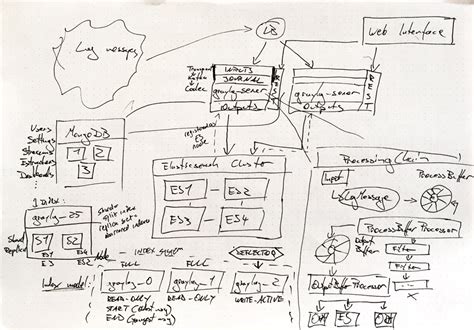 Log messages
LB
Web Interface
Transport
Codec
INPUTS
JOURNAL
graylog-server
Outputs
REST
graylog-server
Outputs
REST
Users
Settings
Streams
Extractors
Dashboards
MongoDB
1
2
3
registered as
ES
node
Elasticsearch Cluster
ES1
ES2
ES3
ES4
Processing Chain
Input
LogMessage
Process Buffer
Process Buffer
Processor
Filter
Filter
Output
Buffer
Output Buffer Processor
ES
1 Index:
graylog_25
Shard
Replica
S1
S2
ES1
ES4
ES3
ES2
Node
Index model:
INDEX
FULL
FULL
DEFLECTOR
graylog_0
graylog_1
graylog_2
READ-ONLY
READ-ONLY
WRITE-ACTIVE
START (oldest msg)
END (youngest msg)